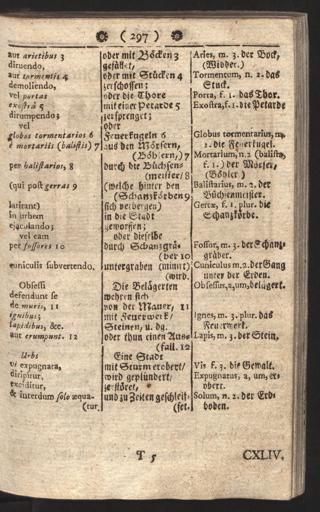 ( 297 )
aut arietibus 3
diruendo,
aut tormentis 4
demoliendo,
vel portas
exostrâ 5
dirumpendo;
vel
globos tormentarios 6
è mortariis (balistis) 7
per balistarios, 8
(qui post gerras 9
latitant)
in urbem
ejaculando;
vel eam
per fossores 10
cuniculis subvertendo.
Obsessi
defendunt se
de muris, 11
ignibus;
lapidibus, &c.
aut erumpunt. 12
Urbs
vi expugnata,
diripitur,
exciditur,
& interdum solo æqua-
(tur.
oder mit Böcken 3
gefället,
oder mit Stücken 4
zerschossen;
oder die Thore
mit einer Petarde 5
zersprenget;
oder
Feuerkugeln 6
aus den Mörsern,
(Böhlern,) 7
durch die Büchsens
(meister/8
(welche hinter den
(Schanzkörben 9
sich verbergen)
in die Stadt
geworffen;
oder dieselbe
durch Schanzgrä-
(ber 10
untergraben (minirt)
(wird.
Die Belägerten
wehren sich
von der Mauer, 11
mit Feuerwerk/
Steinen, u. dg.
oder thun einen Aus-
(fall. 12
Eine Stadt
mit Sturm erobert/
wird geplündert/
zerstöret,
und zu Zeiten geschleif-
(fet.
Aries, m. 3. der Bock,
(Widder.)
Tormentum, n. 2. das
Stuck.
Porta, f. 1. das Thor.
Exostra, f. 1. die Petarde
Globus tormentarius, m.
2. die Feuerkugel.
Mortarium, n. 2 (balista,
f. 1.) der Mörser,
(Böhler)
Balistarius, m. 2. der
Büchsenmeister.
Gerræ, f. 1. plur. die
Schanzkörbe.
Fossor, m. 3. der Schanz-
gräber.
Cuniculus m. 2. der Gang
unter der Erden.
Obsessus, a, um, belägert.
Ignes, m. 3. plur. das
Feuerwerk.
Lapis, m. 3. der Stein.
Vis f. 3. die Gewalt.
Expugnatus, a, um, er-
obert.
Solum, n. 2. der Erd-
boden.
T 5
CXLIV.